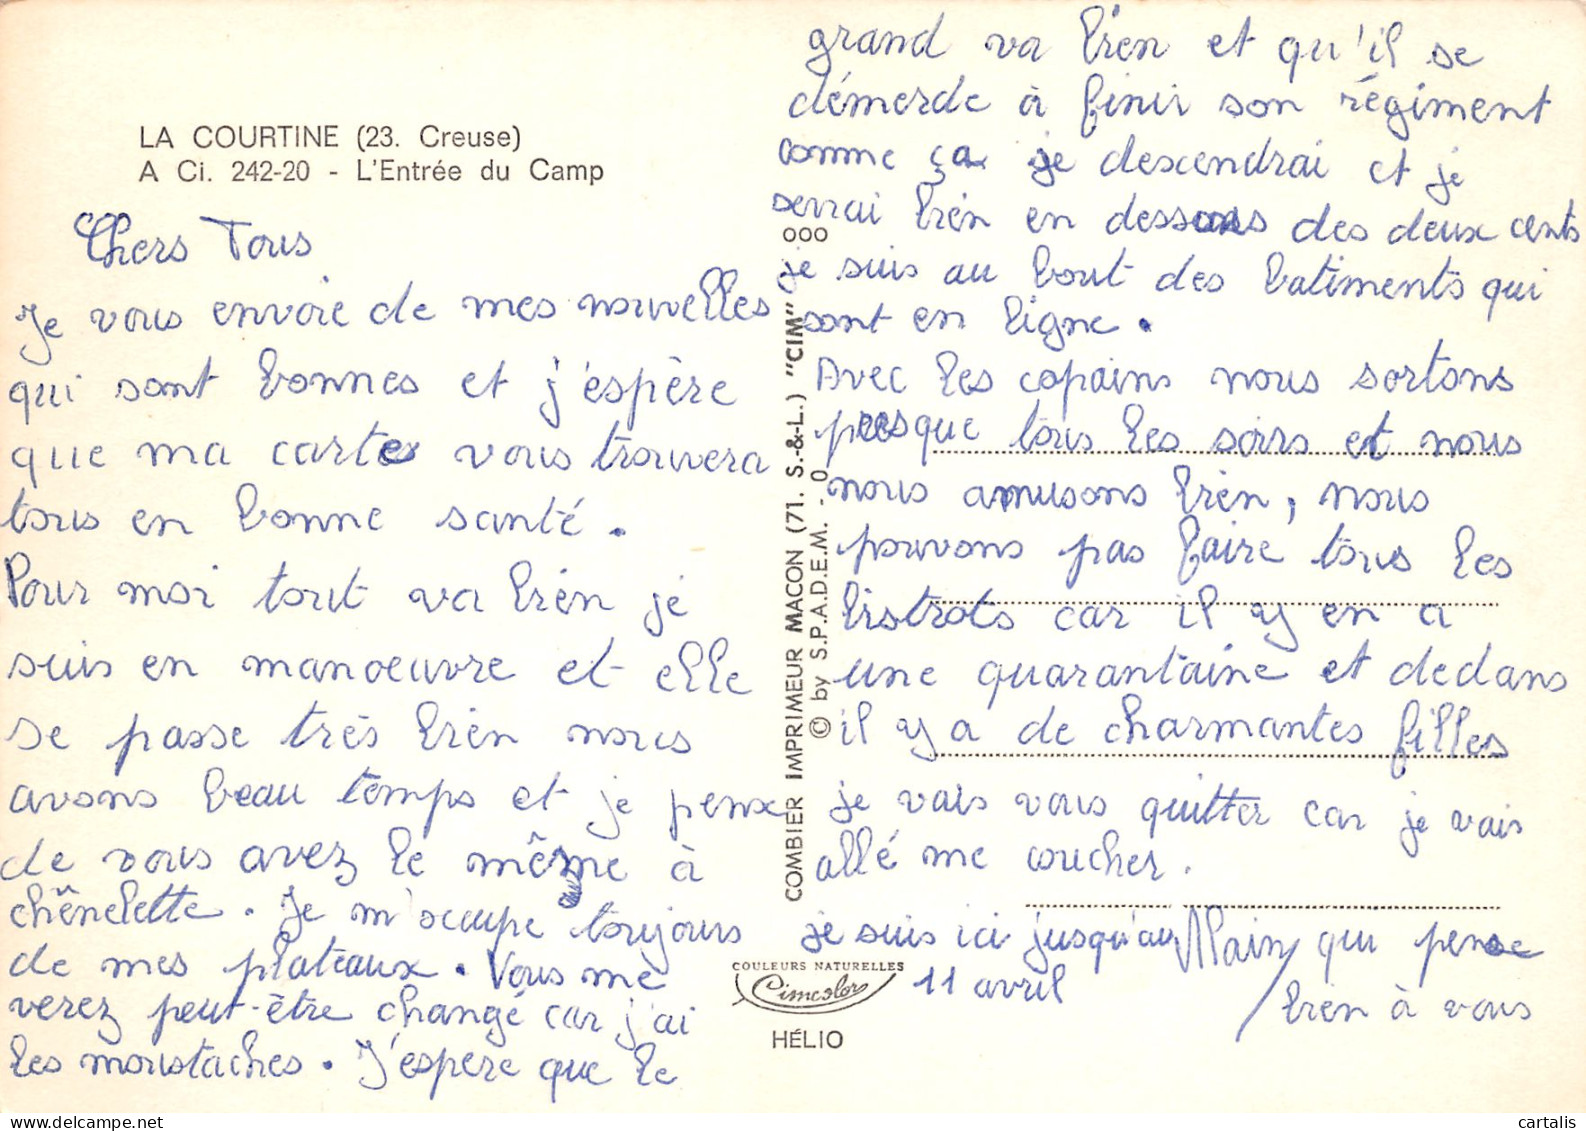 LA COURTINE (23. Creuse)
A Ci. 242-20 - L'Entrée du Camp
Chers Tous
Je vous envoie de mes nouvelles
qui sont bonnes et j'espère
que ma carte vous trouvera
tous en bonne santé.
Pour moi tout va bien je
suis en manoeuvre et elle
se passe très bien nous
avons beau temps et je pense
de vous avez le même à
chênelette. Je m'ocupe toujours
de mes plateaux. Vous me
verez peut-être changé car j'ai
les moustaches. J'espere que le
grand va bien et qu'il se
démerde à finir son régiment
comme ça je descendrai et je
serrai bien en dessous des deux cents
je suis au bout des batiments qui
sont en ligne.
Avec les copains nous sortons
presque tous les soirs et nous
nous amusons bien, nous
pouvons pas faire tous les
bistrots car il y en a
une quarantaine et dedans
il y a de charmantes filles
je vais vous quitter car je vais
allé me coucher.
je suis ici jusqu'au
11 avril
Alain qui pense
bien à vous
COMBIER IMPRIMEUR MACON (71. S.-&-L.) "CIM" 000
© by S.P.A.D.E.M. - 0
COULEURS NATURELLES
Cimcolor
HÉLIO
cartalis